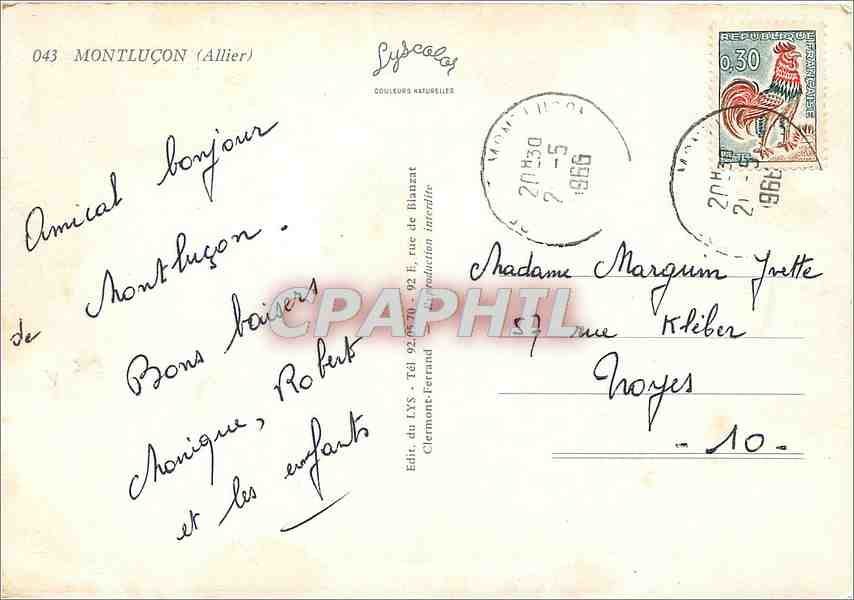 043 MONTLUÇON (Allier)
Lyscolor
COULEURS NATURELLES
REPUBLIQUE FRANÇAISE
0,30
20H30
2 -5
1966
20H30
2 -5
1966
Amical bonjour
de Montluçon.
Bons baisers
Monique, Robert
et les enfants
Edit. du LYS - Tél 92.05.70 - 92 E, rue de Blanzat
Clermont-Ferrand - Reproduction interdite
CPAPHIL
Madame Marguin Yvette
57 rue Kléber
Troyes
- 10 -